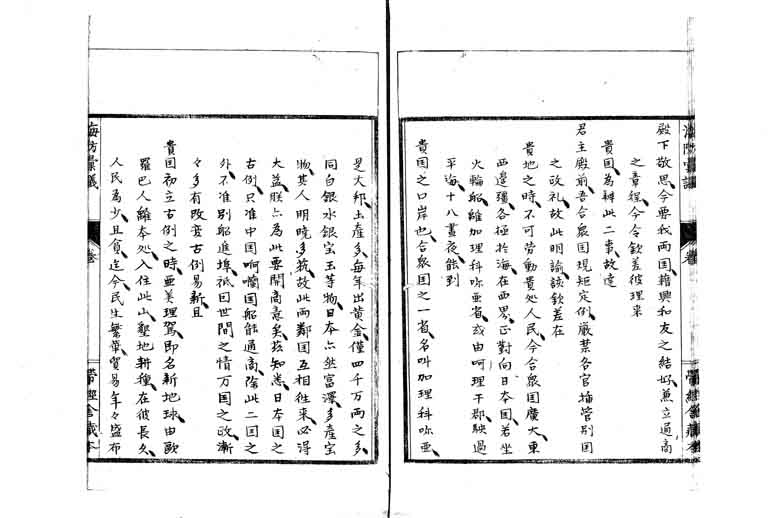 海防彙議 卷 帶經舍藏本
殿下敬思今要我兩国藉興和友之結好兼立通商
之章程今令欽差彼理来
貴国為辨此二事故達
君主殿前吾合衆国現短定例嚴禁各官揷管別国
之政礼故此明諭該欽差在
貴地之時不可勞動貴処人民今合衆国廣大東
西邊疆各極於海在西界正對向日本国若坐
火輪船離加理科呀亜省或由呵理干郡駛過
平海十八晝夜能到
貴国之口岸也合衆国之一省名叫加理科呀亜
是大邦土產多每年出黄金僅四千万两之多
同白銀水銀宝玉等物日本亦坐富澤多產宝
物其人明曉多藝故此兩鄰国互相徃来必得
大益朕亦為此要開商意矣茲知悉日本国之
古例只准中国啊囒国船能通商除此二国之
外不准別船進埠祗因世間之情万国之政漸
々多有改变古例易新且
貴国初立古例之時亜美理駕即名新地球由歐
羅巴人離本処入住此山墾地耕種在彼長久
人民為少且貧迄今民生繁榮貿易年々盛布
海防彙議 卷 帶經舍藏本